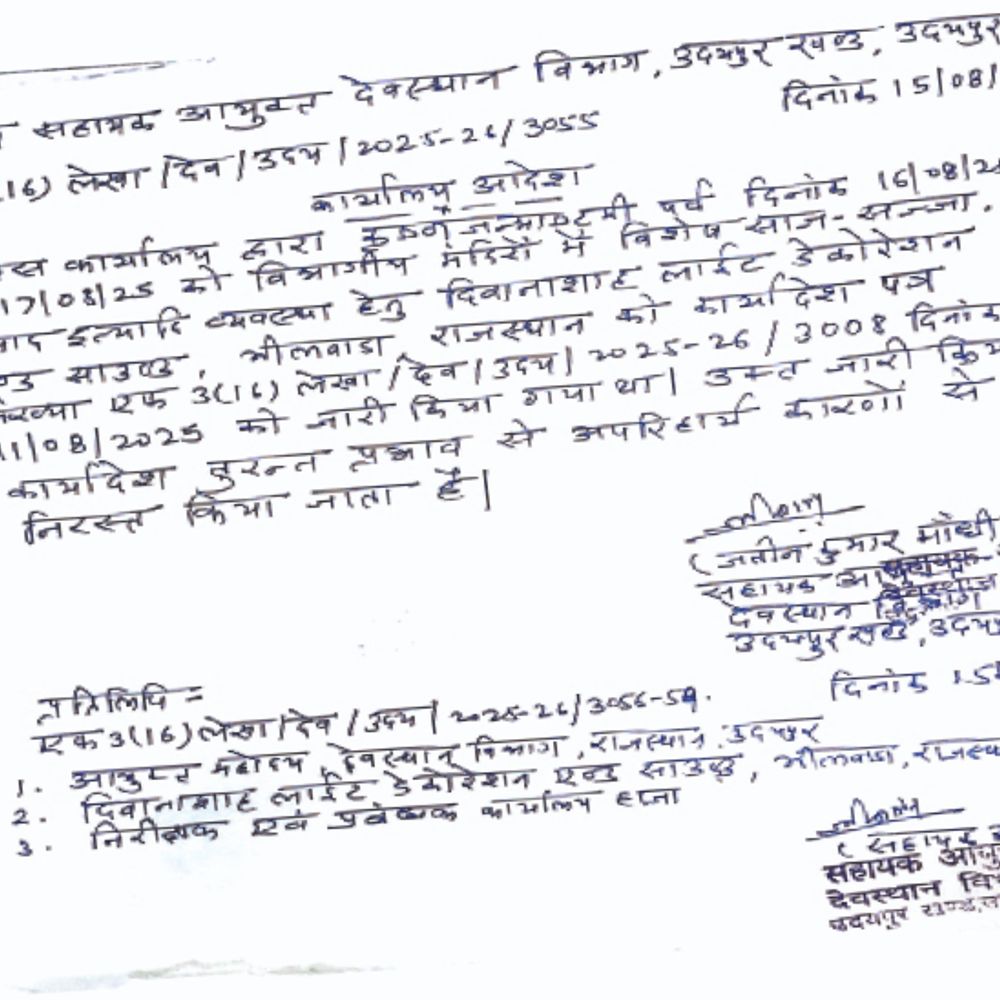 सहायक आयुक्त देवस्थान विभाग, उदयपुर खण्ड, उदयपुर
दिनांक 15/08/
16) लेखा/देव/उदय/2025-26/3055
कार्यालय आदेश
कार्यालय द्वारा कृष्ण जन्माष्टमी पर्व दिनांक 16/08/25
17/08/25 को विभागीय मंदिरों में विशेष साज-सज्जा.
इत्यादि व्यवस्था हेतु दिवानाशाह लाईट डेकोरेशन
साउण्ड, भीलवाडा, राजस्थान को कार्यादेश पत्र
एफ 3(16) लेखा/देव/उदय/2025-26/3008 दिनांक
11/08/2025 को जारी किया गया था। उक्त जारी
कार्यादेश तुरन्त प्रभाव से अपरिहार्य कारणों से
निरस्त किया जाता है।
(जतीन कुमार
सहायक
देवस्थान विभाग
उदयपुर खण्ड, उदयपुर
प्रतिलिपि =
दिनांक 15
एफ 3(16) लेखा/देव/उदय/2025-26/3056-59.
1. आयुक्त महोदय, देवस्थान विभाग, राजस्थान, उदयपुर
2. दिवानाशाह लाईट डेकोरेशन एण्ड साउण्ड, भीलवाडा, राजस्थ
3. निरीक्षक एवं प्रबंधक कार्यालय हाजा
(सहायक
सहायक आयु
देवस्थान वि
उदयपुर खण्ड,